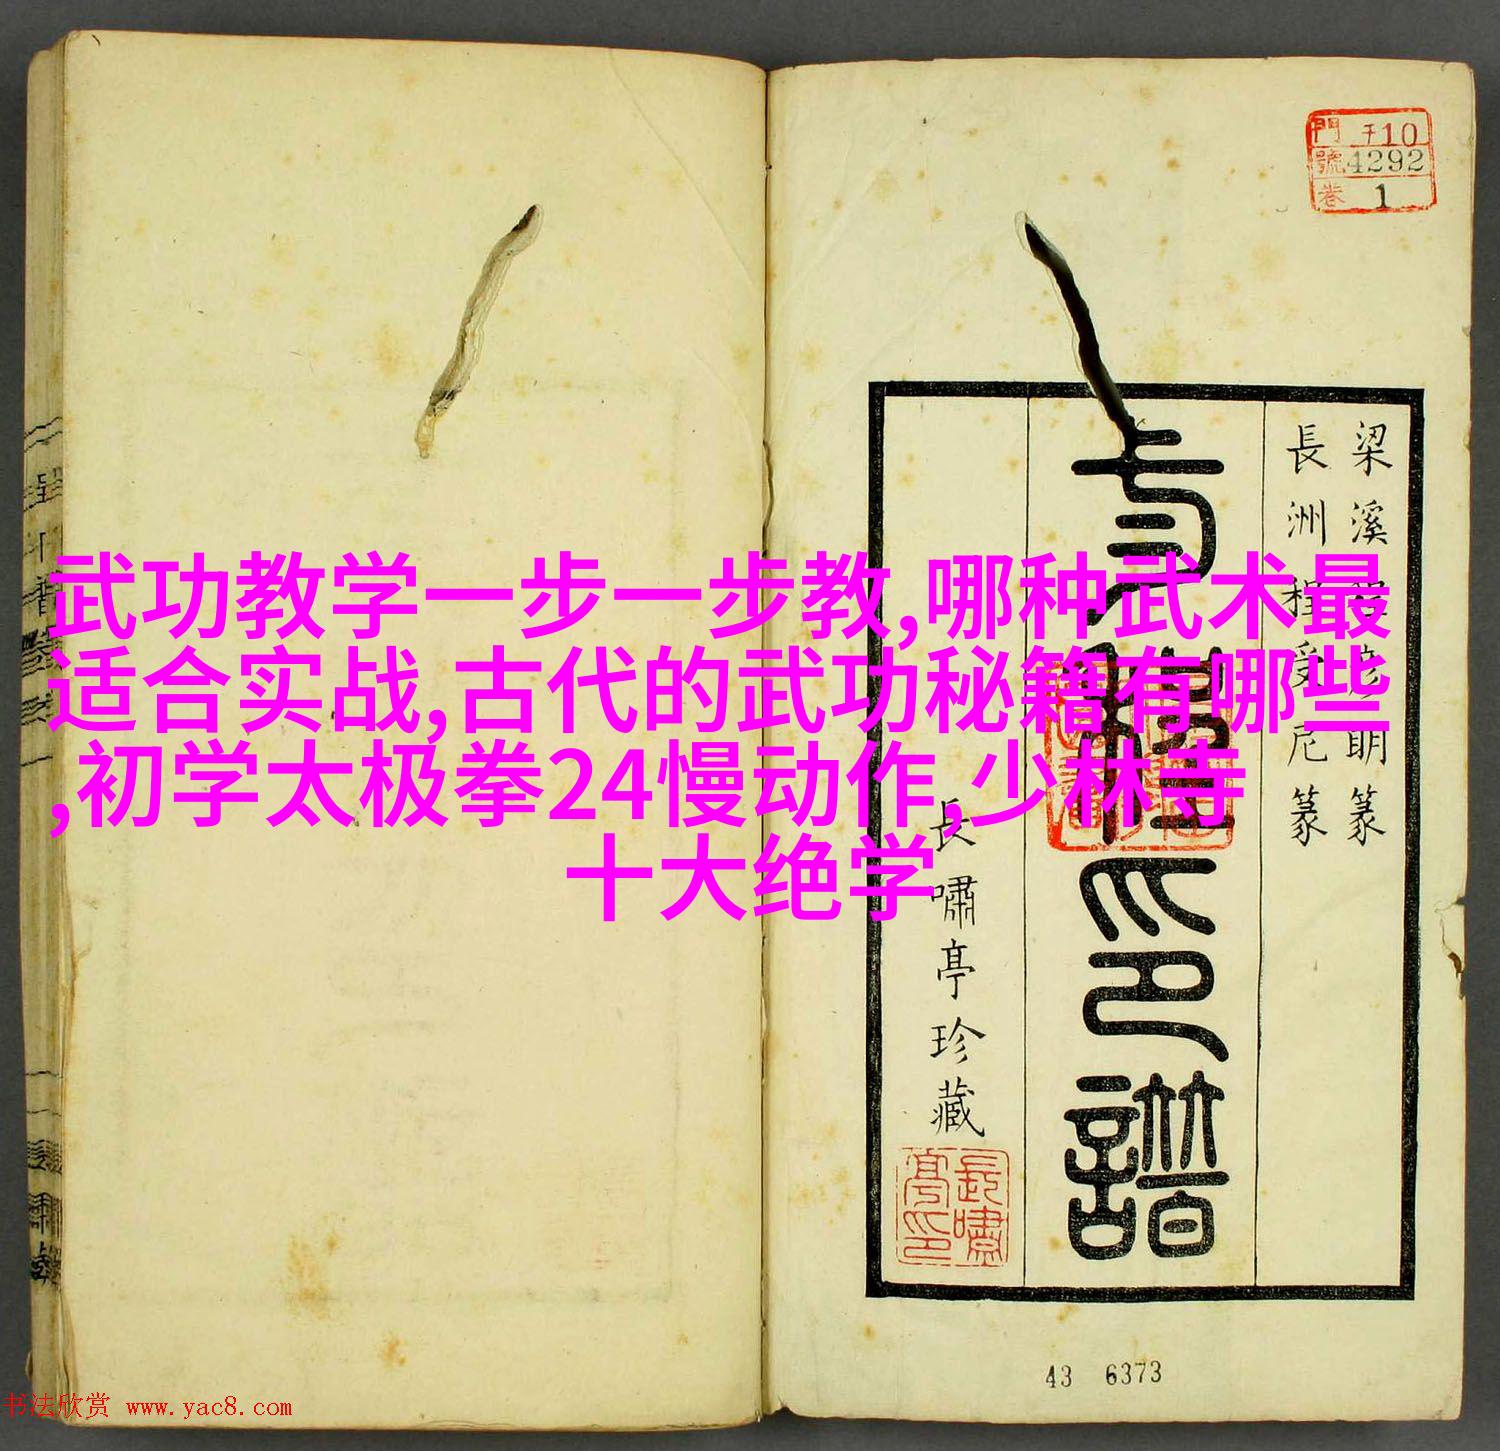 門 千10
號 4292
卷 1
梁溪明篆
長洲程受尼篆
印譜
長嘯亭珍藏
長嘯亭印
武功教学一步一步教,哪种武术最
适合实战,古代的武功秘籍有哪些
,初学太极拳24慢动作,少林寺
十大绝学
43 6373
书法欣赏 www.yac8.com